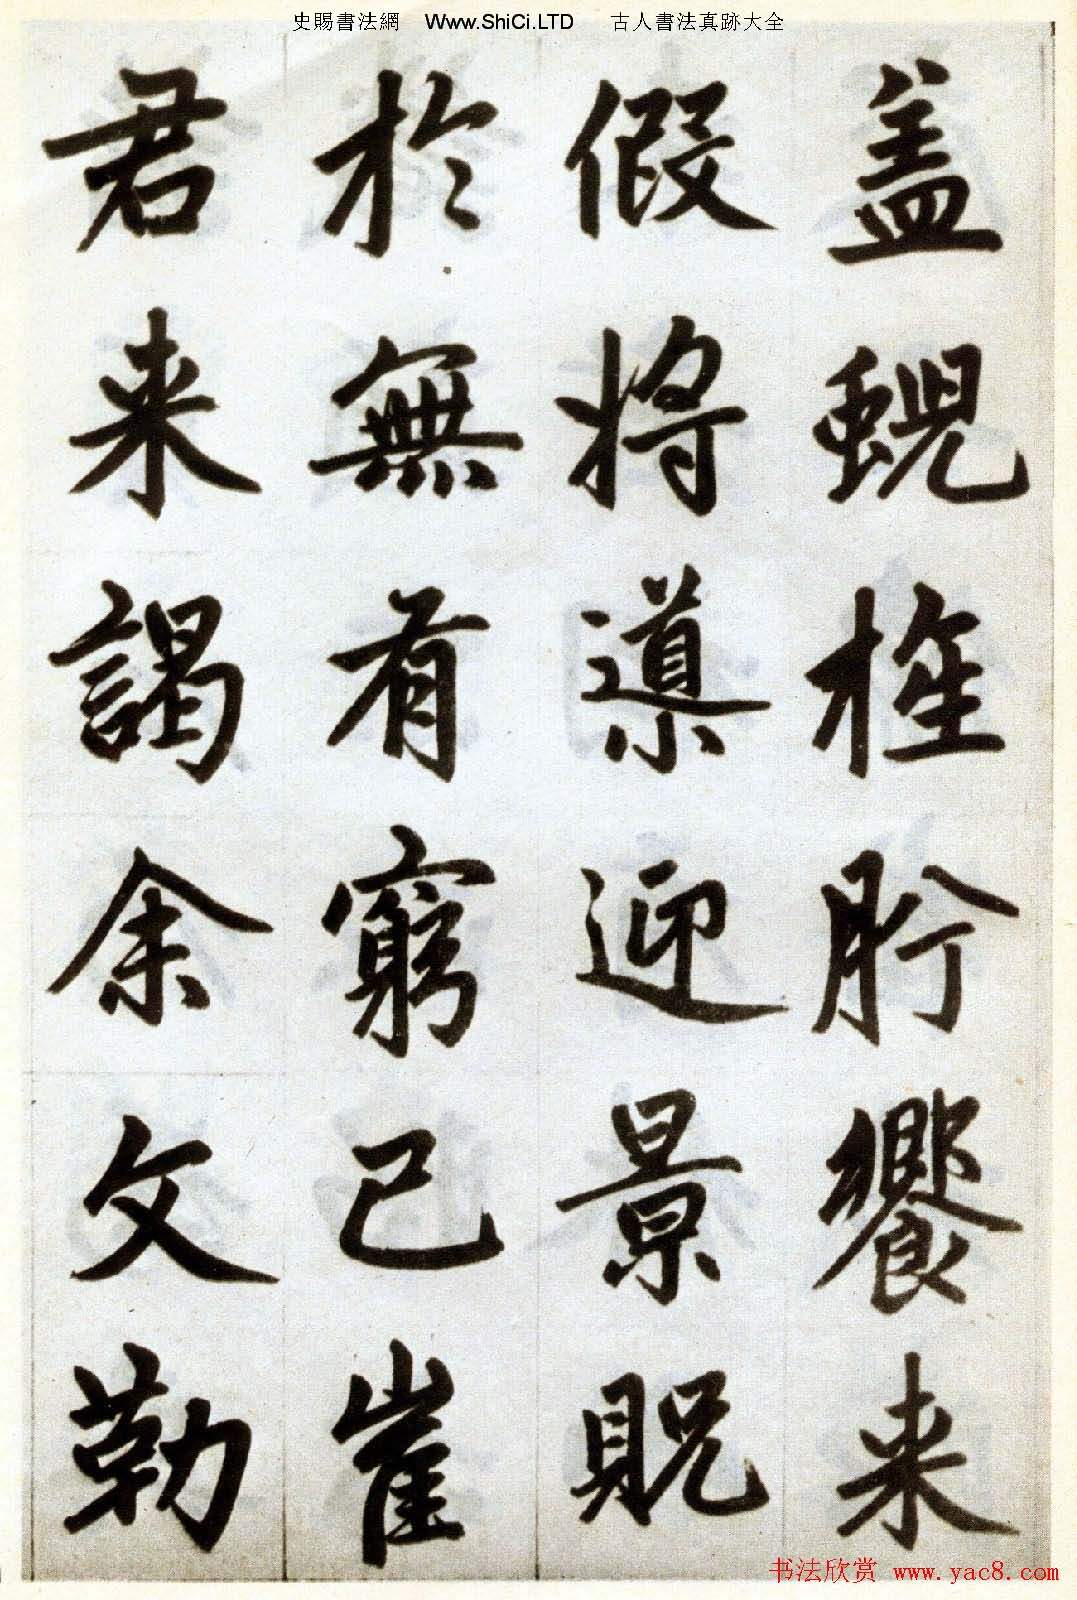 史賜書法網 Www.ShiCi.LTD 古人書法真跡大全
盖 睉肸饗来
假将導迎景貺
於無有窮已崔
君来謁余文勒
书法欣赏 www.yac8.com